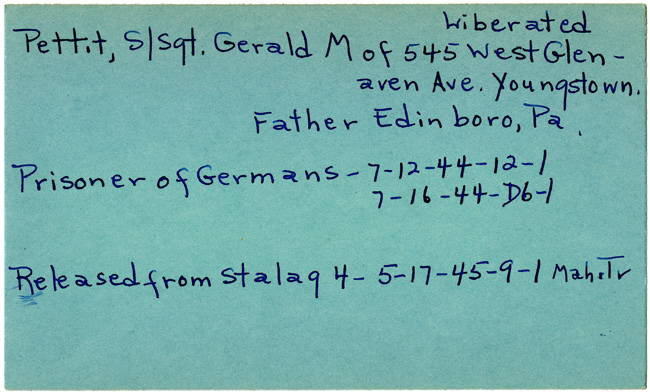 Liberated
Pettit, S/Sgt. Gerald M of 545 West Glen-
aven Ave. Youngstown.
Father Edinboro, Pa.
Prisoner of Germans - 7-12-44-12-1
7-16-44-D6-1
Released from Stalag 4- 5-17-45-9-1 Mah.Tr